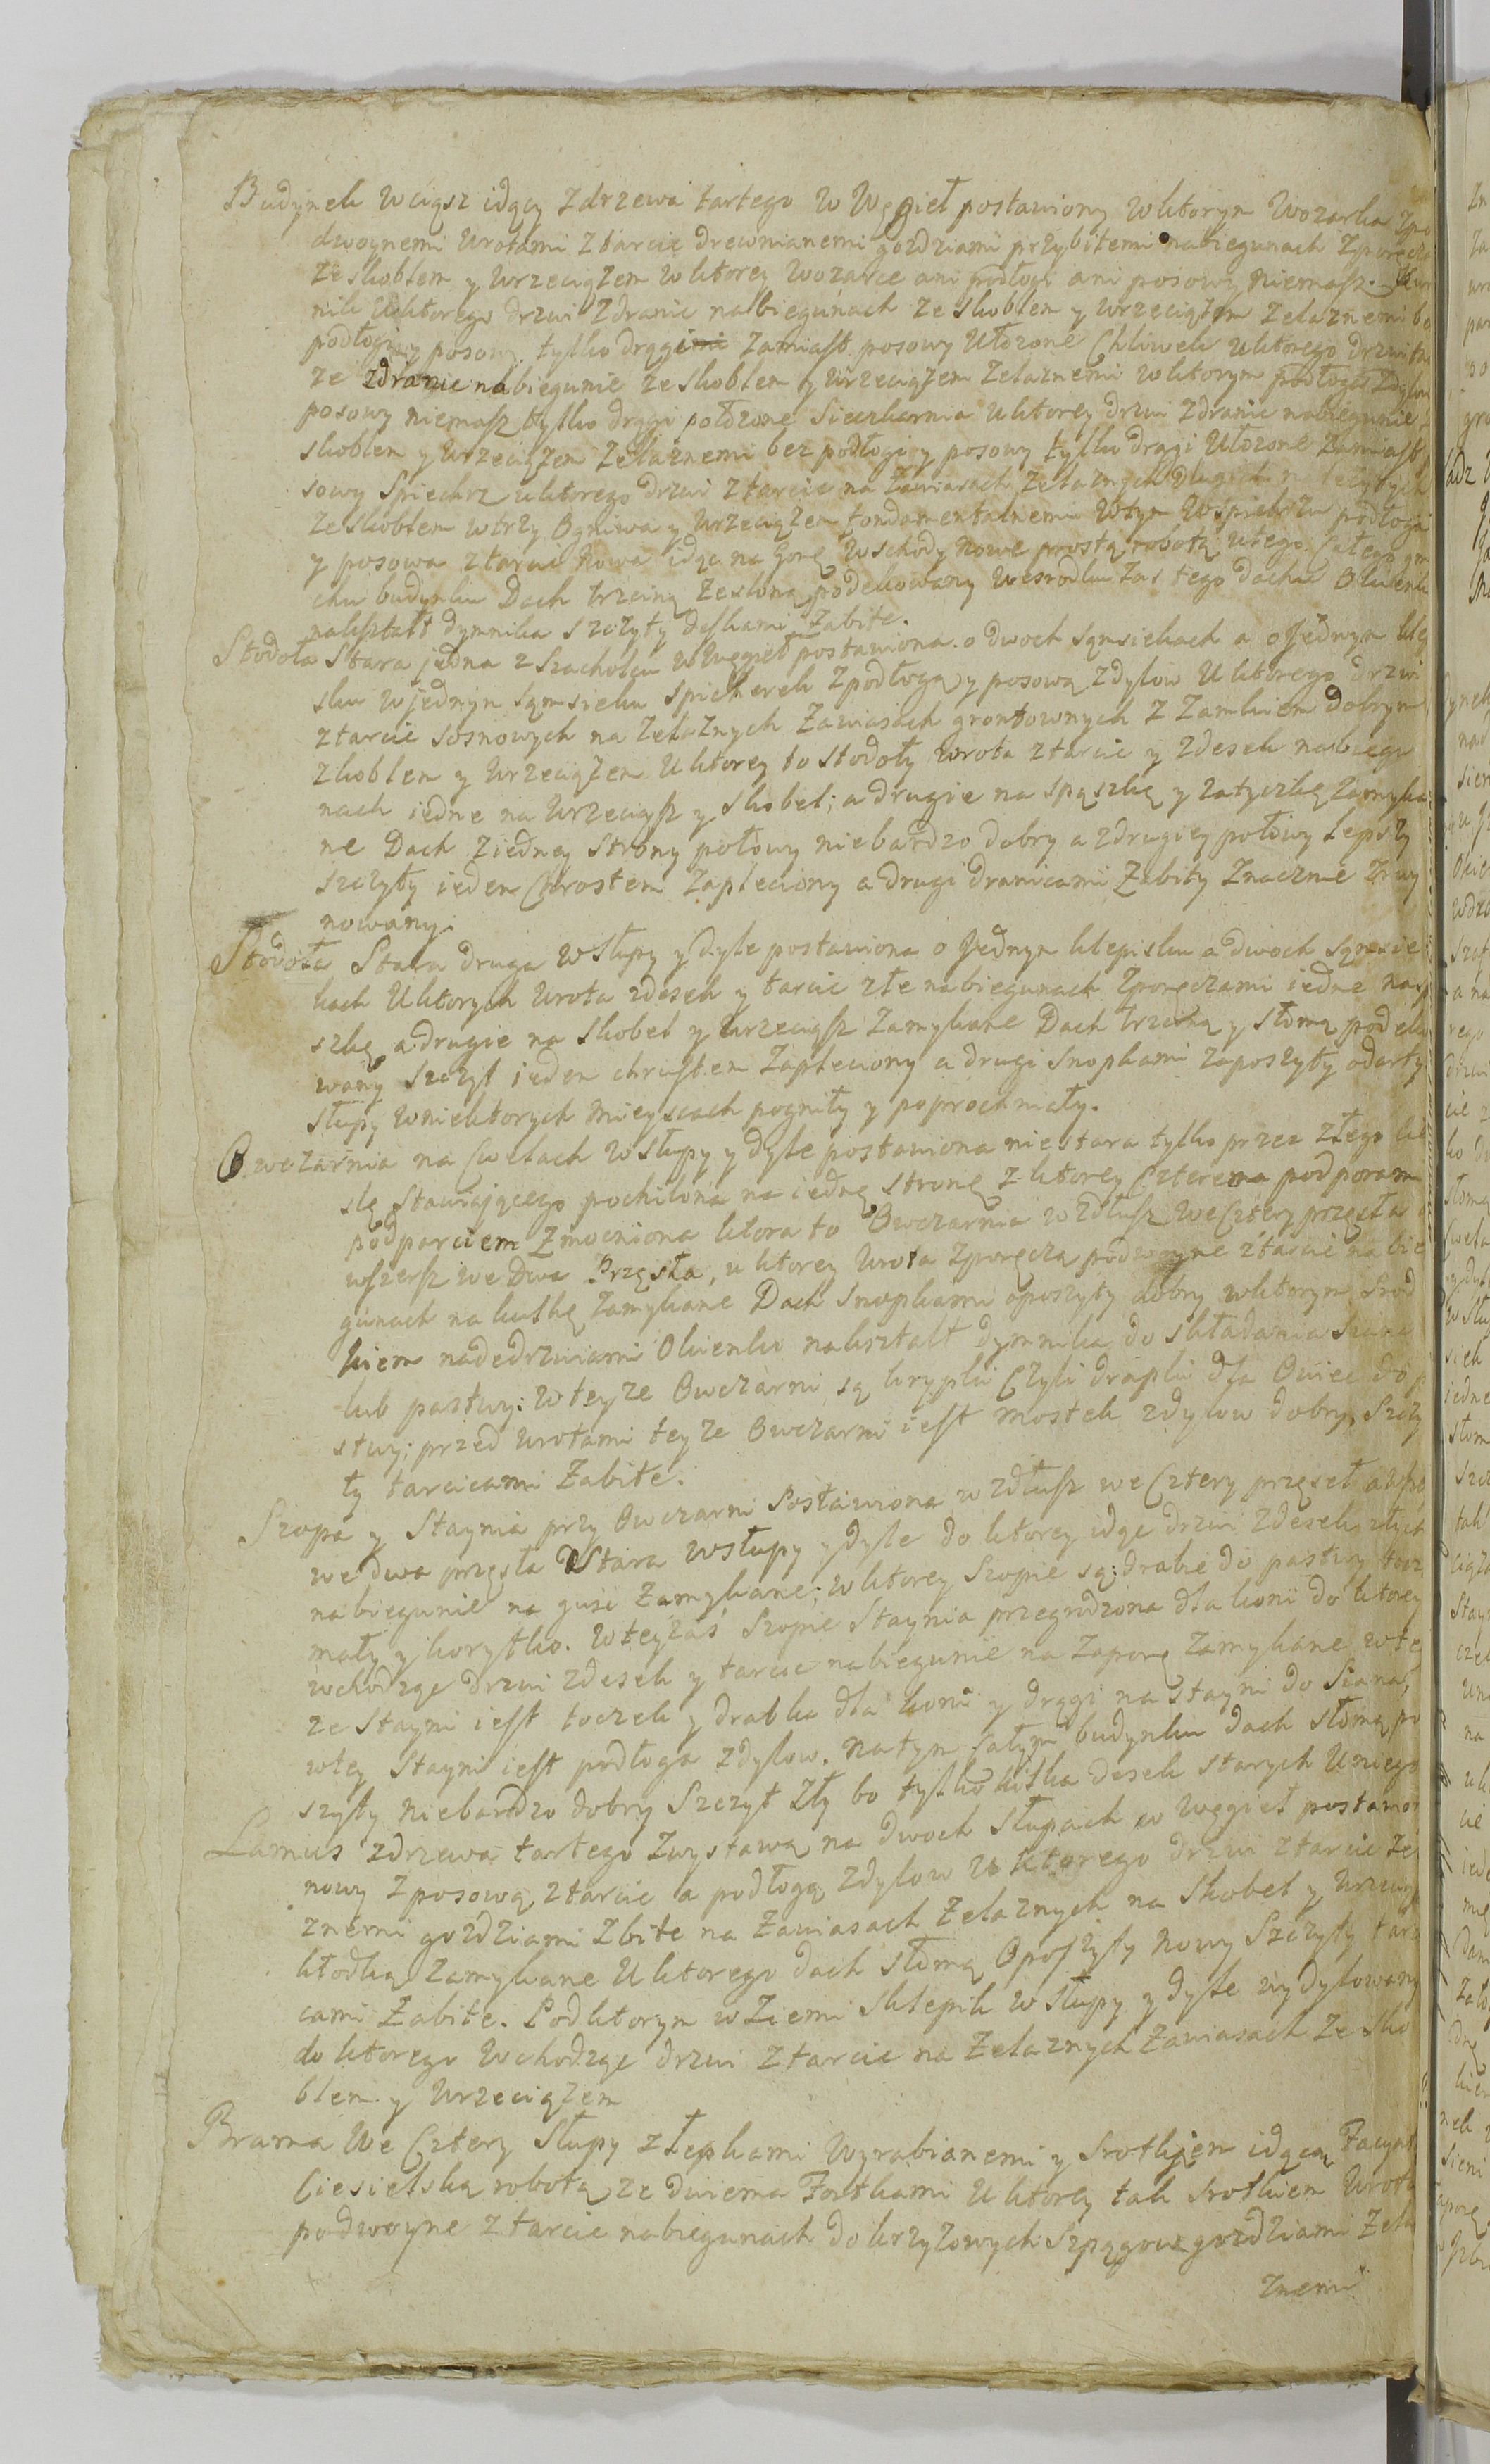 Budynek wciąsz idący z drzewa tartego w Węgieł postawiony w ktorym Wozarka z po
dwoynemi wrotami z tarcic drewnianemi gozdziami przybitemi na biegunach z poręczą
ze skoblem y wrzeciązem w ktorey Wozarce ani podłogi ani posowy niemasz. Kur
nik u ktorego drzwi z dranic na biegunach ze skoblem y wrzeciązem zelaznemi be
podłogi y posowy tylko drągi zamiast posowy ułozone Chliwek u ktorego drzwi tak
ze z dranic na biegunie ze skoblem y wrzeciązem zelaznemi w ktorym podłoga z dylow
posowy niemasz tylko drągi połozone Sieczkarnia u ktorey drzwi z dranic na biegunie
skoblem y wrzeciązem zelaznemi bez podłogi y posowy tylko drągi ułozone zamiast
sowy Spiechrz u ktorego drzwi z tarcic na zawiasach zelaznych długich nalezytych
ze skoblem w trzy ogniwa y wrzeciązem fondamentalnemi w tym w spichrzu podłoga
y posowa z tarcic nowa idąc na gorę w schody nowe prostą robotą u tego całego gm
chu budynku Dach trzciną ze słomą podekowany w srodku zas tego dachu okienko
nakształt dymnika szczyty deskami zabite.
Stodoła Stara jedna z Szacholcu w Węgieł postawiona o dwoch sąmsiekach a o jednym klep
sku w jednym sąmsieku spicherek z podłogą y posową z dylow u ktorego drzwi
z tarcic sosnowych na zelaznych zawiasach grontownych z zamkiem dobrym
z koblem y wrzeciązem u ktorey to stodoły wrota z tarcic y z desek na biegu
nach iedne na wrzeciąsz y skobel; a drugie na spąszkę y zatyczkę zamyka
ne Dach z iedney strony połowy niebardzo dobry a z drugiey połowy lepszy
szczyty ieden Chrostem zapleciony a drugi dranicami zabity znacznie zruy
nowany.
Stodoła Stara druga w słupy y dyle postawiona o jednym klepisku a dwoch sąmsie
kach u ktorych wrota z desek y tarcic złe na biegunach z poręczami iedne na sp
szkę a drugie na skobel y wrzeciąsz zamykane Dach trzciną y słomą podeko
wany szczyt ieden chrustem zapleciony a drugi snopkami zaposzyty odarty
słupy w niektorych mieyscach pogniły y poprochniały.
Owczarnia na Cwelach w słupy y dyle postawiona nie stara tylko przez złego cie
slę stawiającego pochilona na iednę stronę z ktorey czterema podporam
podparciem zmocniona ktora to Owczarnia w zdłusz we cztery przęsła a
wszersz we dwa Przęsła, u ktorey wrota z poręczą podwoyne z tarcic na bie
gunach na kulkę zamykane Dach snopkami oposzyty dobry w ktorym srod
kiem nadedrzwiami okienko nakształt dymnika do składania siana
lub pastwy: w teyze Owczarni są krypki czyli drapki dla owiec do p
stwy; przed wrotami teyze Owczarni iest mostek z dylow dobry, szczy
ty tarcicami zabite.
Szopa y Staynia przy Owczarni postawiona w zdłusz we cztery przęseł a wsze
we dwa przęsła Stara w słupy y dyle do ktorey idąc drzwi z desek złych
na biegunie na guzi zamykane; w ktorey Szopie są: drabie do pastwy tocz
mały y korytko. W teyzas Szopie Staynia przegrodzona dla koni do ktorey
wchodząc drzwi z desek y tarcic na biegunie na zaporę zamykane w tey
ze stayni iest toczek y drabka dla koni y drągi na stayni do siana,
w tey stayni iest podłoga z dylow. na tym całym budynku dach słomą po
szyty niebardzo dobry szczyt zły bo tylko kilka desek starych u niego
Lamus z drzewa tartego z wystawą na dwoch słupach w węgieł postawio
nowy z posową z tarcic a podłogą z dylow u ktorego drzwi z tarcic ze
znemi gozdziami zbite na zawiasach zelaznych na skobel y wrzeciąsz
kłodką zamykane u ktorego dach słomą oposzyty nowy szczyty tarc
cami zabite. Pod ktorym w ziemi sklepik w słupy y dyle wydylowany
do ktorego wchodząc drzwi z tarcic na zelaznych zawiasach ze sko
blem y wrzeciązem
Brama we cztery słupy z łepkami wyrabianemi y srotkiem idącą Facyat
Ciesielską robotą ze dwiema Fortkami u ktorey tak srotkiem wrota
podwoyne z tarcic na biegunach do krzyzowych szpągow gozdziami zela
znemi